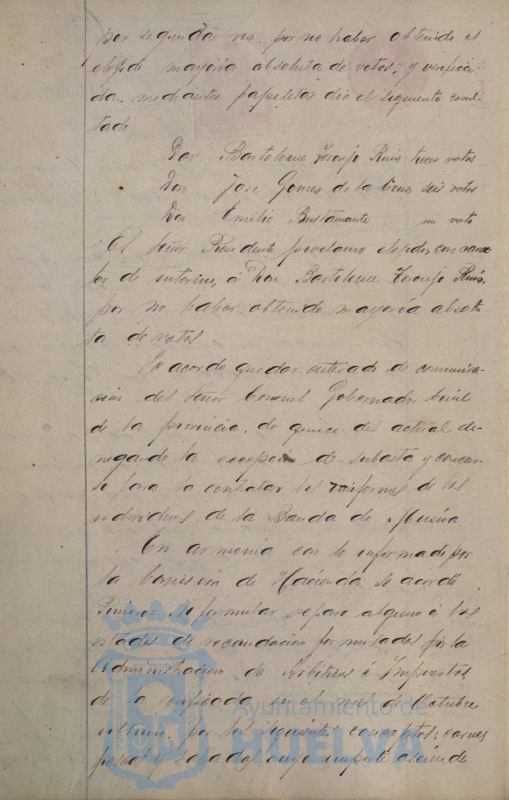 por segunda vez por no haber obtenido el
elegido mayoria absoluta de votos; y verifica-
da mediante papeletas dio el siguiente resul-
tado
Don Bartolome Toronjo Ruiz trece votos
Don Jose Gomez de la Cruz seis votos
Don Emilio Bustamante un voto
El Señor Presidente proclamo elegido, con carac-
ter de interino, á Don Bartolome Toronjo Ruiz,
por no haber obtenido mayoría absolu-
ta de votos
Se acordo quedar enterado de comunica-
cion del Señor Coronel Gobernador Civil
de la provincia, de quince del actual de-
negando la excepcion de subasta y concur-
so para contratar los uniformes de los
individuos de la Banda de Musica
En armonia con lo informado por
la Comisión de Hacienda se acordó
Primero: formular reparo alguno á los
estados de recaudacion formulados por la
Administracion de Arbitrios é Impuestos
de la verificada en el mes de Octubre
ultimo, por los siguientes conceptos: carnes
pescado y cuyo importe asciende
Ayuntamiento de
HUELVA